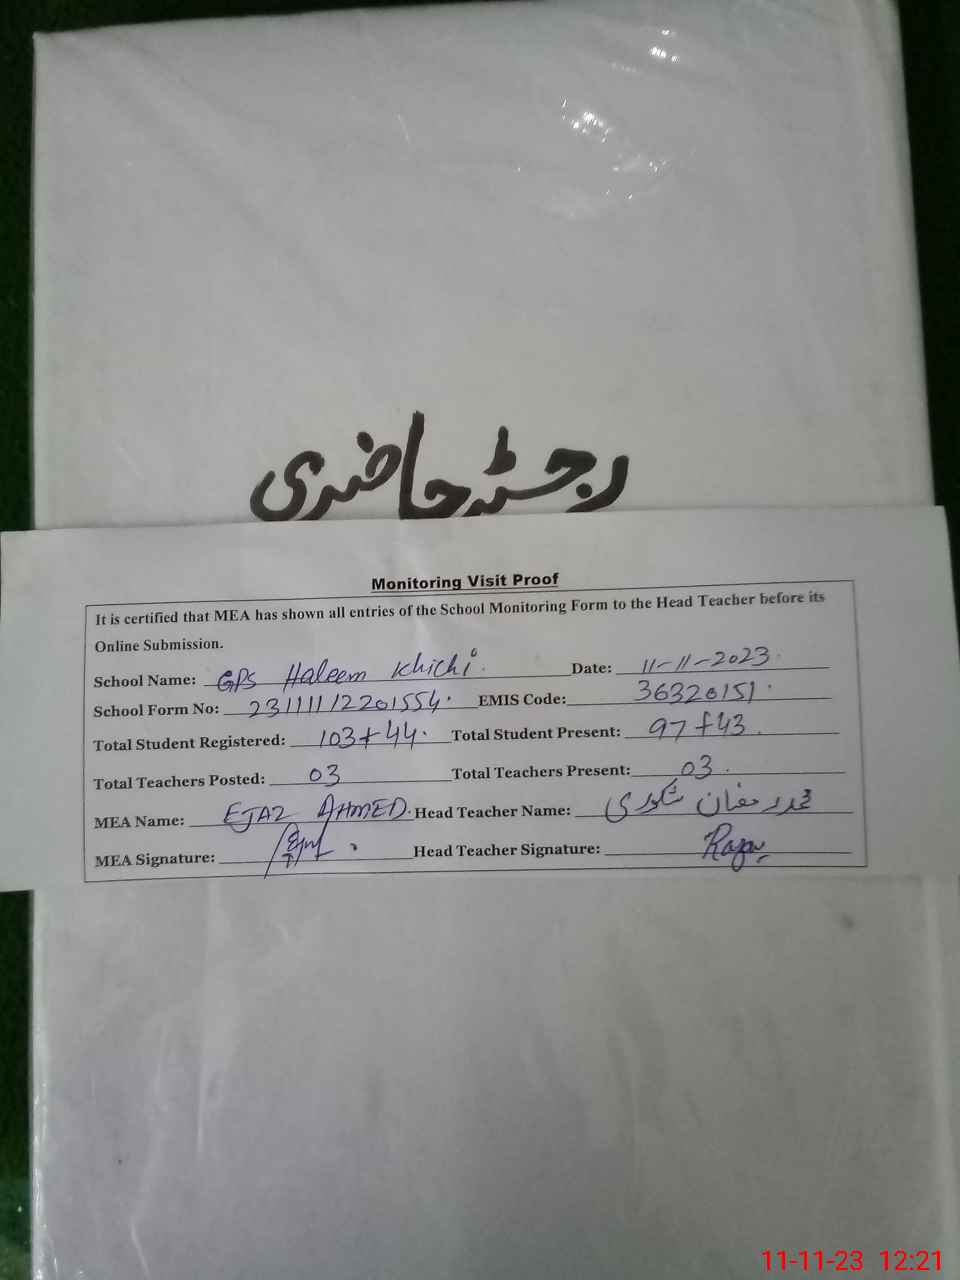 رجسٹر حاضری
Monitoring Visit Proof
It is certified that MEA has shown all entries of the School Monitoring Form to the Head Teacher before its
Online Submission.
School Name: GPS Haleem Khichi. Date: 11-11-2023
School Form No: 23111112201554. EMIS Code: 36320151.
Total Student Registered: 103+44. Total Student Present: 97+43.
Total Teachers Posted: 03 Total Teachers Present: 03.
MEA Name: EJAZ AHMED. Head Teacher Name: محمد رمضان شکوری
MEA Signature: Head Teacher Signature:
11-11-23 12:21